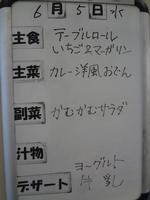 6月5日水
主食 テーブルロール
いちご&マーガリン
主菜 カレー洋風おでん
副菜 かむかむサラダ
汁物
ヨーグルト
デザート 牛乳